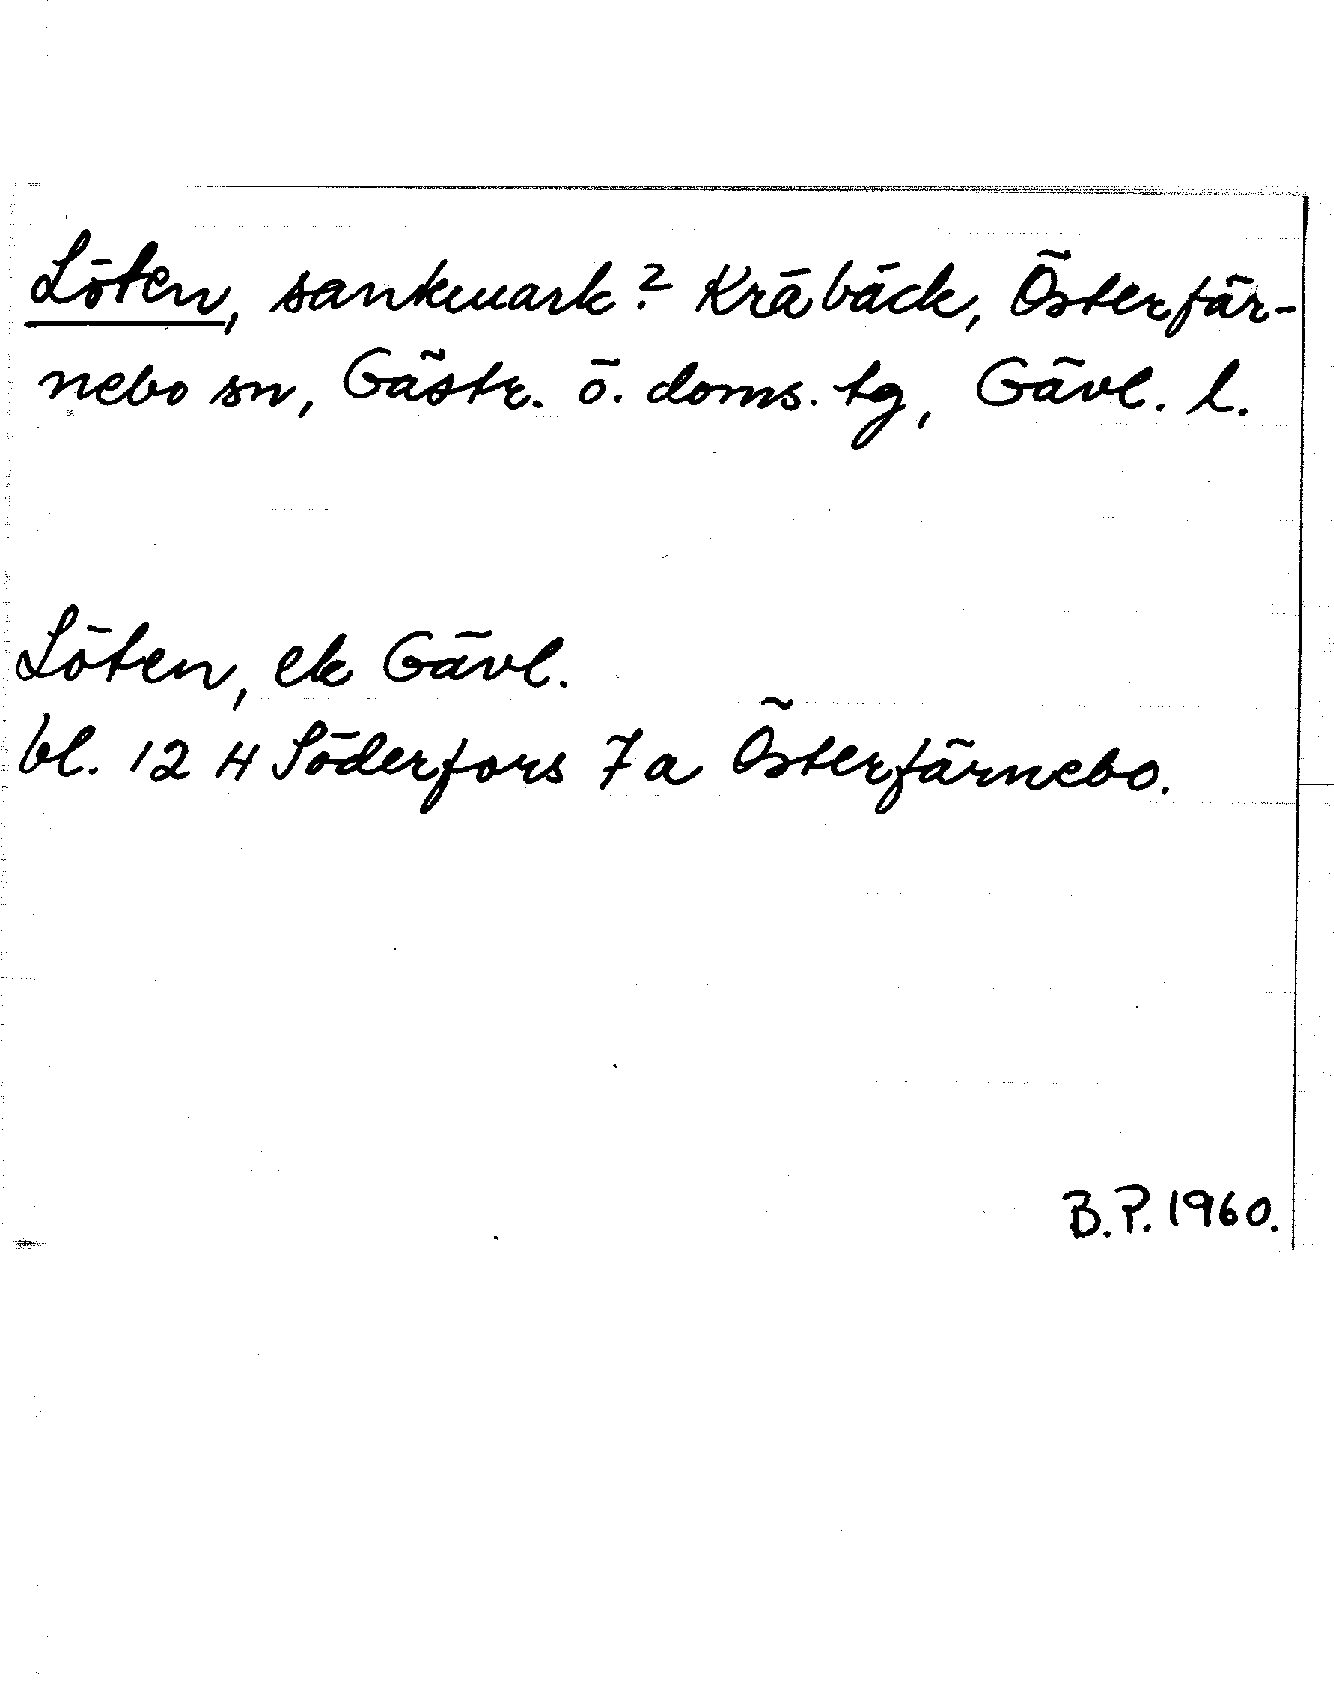 Löten, sankmark? Kräbäck, Österfär-
nebo sn, Gästr. ö. doms. tg, Gävl. l.
Löten, ek Gävl.
bl. 12 H Söderfors 7 a Österfärnebo.
B.P. 1960.